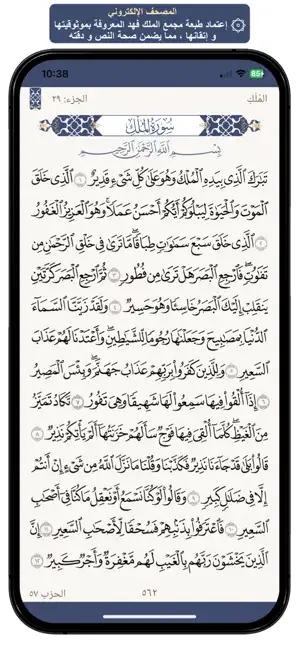 المصحف الإلكتروني
إعتماد طبعة مجمع الملك فهد المعروفة بموثوقيتها
و إتقانها ، مما يضمن صحة النص و دقته
10:38
85
المُلك
الجزء: ٢٩
سُورَةُ المُلْكِ
بِسْمِ اللَّهِ الرَّحْمَٰنِ الرَّحِيمِ
تَبَٰرَكَ ٱلَّذِي بِيَدِهِ ٱلْمُلْكُ وَهُوَ عَلَىٰ كُلِّ شَيْءٖ قَدِيرٌ ١ ٱلَّذِي خَلَقَ
ٱلْمَوْتَ وَٱلْحَيَوٰةَ لِيَبْلُوَكُمْ أَيُّكُمْ أَحْسَنُ عَمَلٗاۚ وَهُوَ ٱلْعَزِيزُ ٱلْغَفُورُ
٢ ٱلَّذِي خَلَقَ سَبْعَ سَمَٰوَٰتٖ طِبَاقٗاۖ مَّا تَرَىٰ فِي خَلْقِ ٱلرَّحْمَٰنِ مِن
تَفَٰوُتٖۖ فَٱرْجِعِ ٱلْبَصَرَ هَلْ تَرَىٰ مِن فُطُورٖ ٣ ثُمَّ ٱرْجِعِ ٱلْبَصَرَ كَرَّتَيْنِ
يَنقَلِبْ إِلَيْكَ ٱلْبَصَرُ خَاسِئٗا وَهُوَ حَسِيرٞ ٤ وَلَقَدْ زَيَّنَّا ٱلسَّمَآءَ
ٱلدُّنْيَا بِمَصَٰبِيحَ وَجَعَلْنَٰهَا رُجُومٗا لِّلشَّيَٰطِينِۖ وَأَعْتَدْنَا لَهُمْ عَذَابَ
ٱلسَّعِيرِ ٥ وَلِلَّذِينَ كَفَرُوا۟ بِرَبِّهِمْ عَذَابُ جَهَنَّمَۖ وَبِئْسَ ٱلْمَصِيرُ
٦ إِذَآ أُلْقُوا۟ فِيهَا سَمِعُوا۟ لَهَا شَهِيقٗا وَهِيَ تَفُورُ ٧ تَكَادُ تَمَيَّزُ
مِنَ ٱلْغَيْظِۖ كُلَّمَآ أُلْقِيَ فِيهَا فَوْجٞ سَأَلَهُمْ خَزَنَتُهَآ أَلَمْ يَأْتِكُمْ نَذِيرٞ ٨
قَالُوا۟ بَلَىٰ قَدْ جَآءَنَا نَذِيرٞ فَكَذَّبْنَا وَقُلْنَا مَا نَزَّلَ ٱللَّهُ مِن شَيْءٍ إِنْ أَنتُمْ
إِلَّا فِي ضَلَٰلٖ كَبِيرٖ ٩ وَقَالُوا۟ لَوْ كُنَّا نَسْمَعُ أَوْ نَعْقِلُ مَا كُنَّا فِيٓ أَصْحَٰبِ
ٱلسَّعِيرِ ١٠ فَٱعْتَرَفُوا۟ بِذَنۢبِهِمْ فَسُحْقٗا لِّأَصْحَٰبِ ٱلسَّعِيرِ ١١ إِنَّ
ٱلَّذِينَ يَخْشَوْنَ رَبَّهُم بِٱلْغَيْبِ لَهُم مَّغْفِرَةٞ وَأَجْرٞ كَبِيرٞ ١٢
٥٦٢
الحزب ٥٧